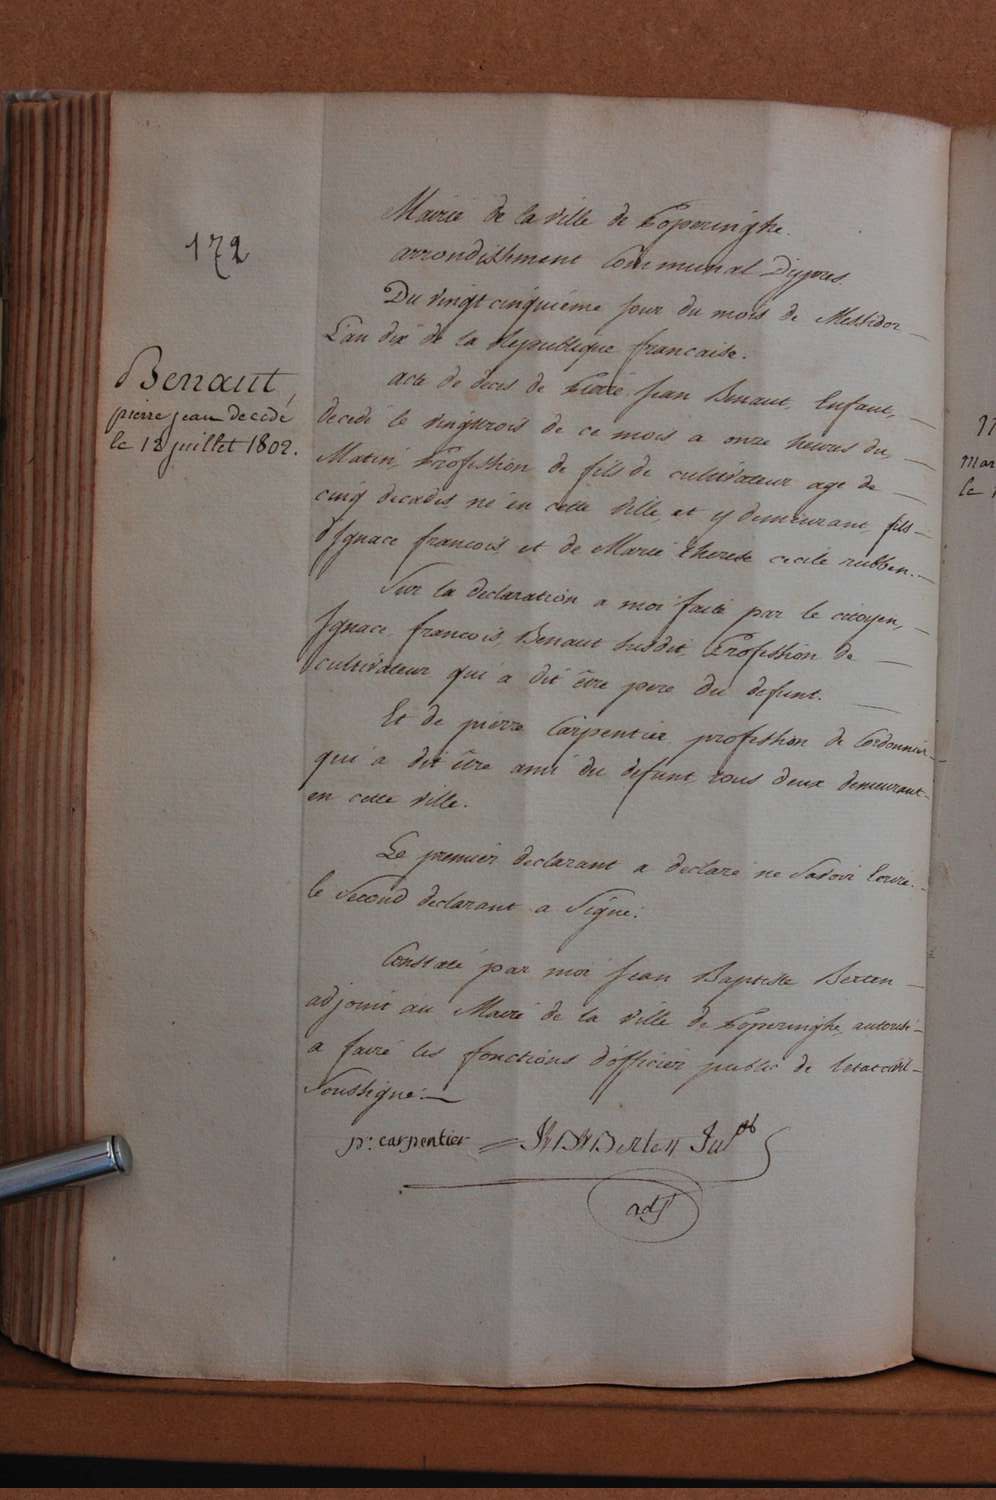 172
Benaut,
pierre jean decedé
le 12 juillet 1802.
Mairie de la Ville de Poperinghe.
arrondissement Communal D'ypres.
Du vingt cinquieme jour du mois de Messidor
L'an dix de la Republique francaise.
acte de deces de Pierre Jean Benaut, Enfant,
decedé le vingtrois de ce mois a onze heures du
Matin, Profession de fils de cultivateur age de
cinq decades, né en cette Ville, et y demeurant, fils
d'Ignace francois, et de Marie therese cecile rubben.
Sur la declaration a moi faite par le citoyen,
Ignace francois, Benaut susdit, Profession de
cultivateur qui a dit être pere du defunt.
Et de pierre Carpentier profession de Cordonnier
qui a dit être ami du defunt, tous deux demeurant
en cette ville.
Le premier declarant a declaré ne Savoir Ecrire.
le Second declarant a Signé.
Constaté par moi Jean Baptiste Berten
adjoint au Maire de la Ville de Poperinghe, autorisé
a faire les fonctions d'officier public de l'etat civil
Soussigné.
p: carpentier
Berten
adjt